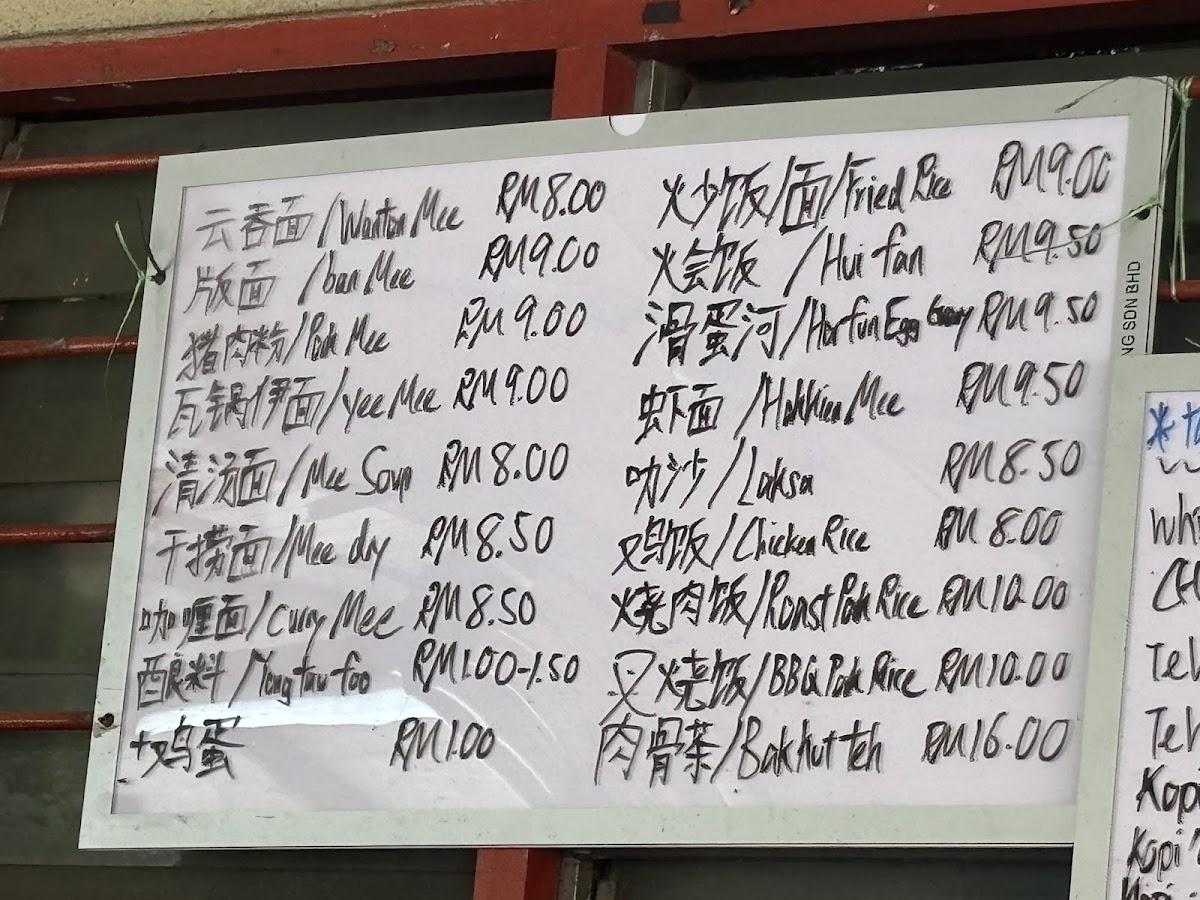 云吞面/Wanton Mee RM8.00
版面 /ban Mee RM9.00
猪肉粉/Pok Mee RM9.00
瓦锅伊面/yee Mee RM9.00
清汤面/Mee Soup RM8.00
干捞面/Mee dry RM8.50
咖喱面/Curry Mee RM8.50
酿料/Yong tau foo RM1.00-1.50
+鸡蛋 RM1.00
火炒饭/面/Fried Rice RM9.00
火烩饭 /Hui fan RM9.50
滑蛋河/Hor fun Egg RM9.50
虾面 /Hokkien Mee RM9.50
叻沙/Laksa RM8.50
鸡饭/Chicken Rice RM8.00
烧肉饭/Roast Pok Rice RM10.00
叉烧饭/BBQ Pok Rice RM10.00
肉骨茶/Bak hut teh RM16.00
NG SDN BHD
Kopi
Kopi